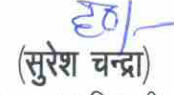 ह०/-
(सुरेश चन्द्रा)